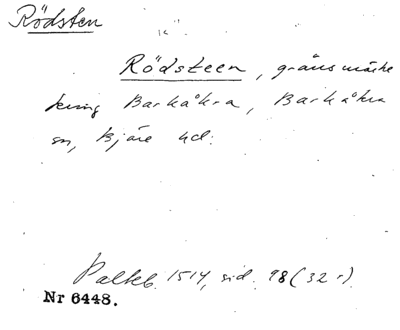 Rödsten
Rödsteen, gränsmärke
kring Barkåkra, Barkåkra
sn, Bjäre hd.
Palteb. 1514, sid. 98 (32 r)
Nr 6448.